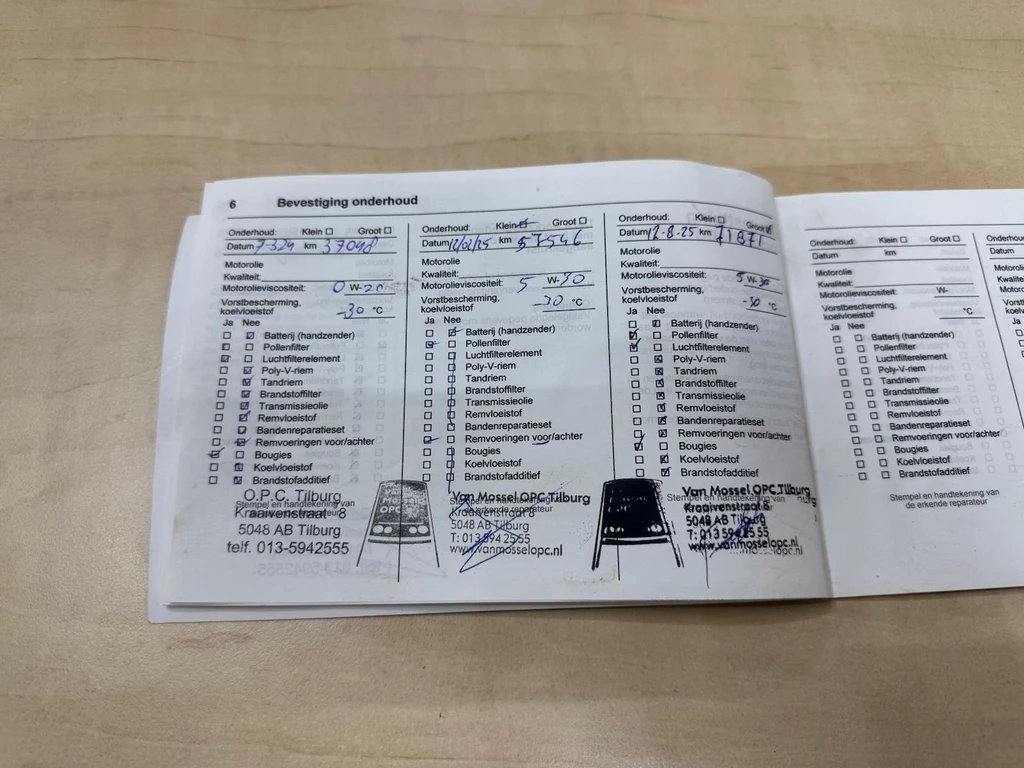 6 Bevestiging onderhoud
Onderhoud: Klein Groot
Datum 7-324 km 37048
Motorolie
Kwaliteit:
Motorolieviscositeit: 0 W-20
Vorstbescherming,
koelvloeistof -30 °C
Ja Nee
Batterij (handzender)
Pollenfilter
Luchtfilterelement
Poly-V-riem
Tandriem
Brandstoffilter
Transmissieolie
Remvloeistof
Bandenreparatieset
Remvoeringen voor/achter
Bougies
Koelvloeistof
Brandstofadditief
Stempel en handtekening van
O.P.C. Tilburg
Kraaivenstraat 8
5048 AB Tilburg
telf. 013-5942555
Onderhoud: Klein Groot
Datum 12/02/25 km 57546
Motorolie
Kwaliteit:
Motorolieviscositeit: 5 W-30
Vorstbescherming,
koelvloeistof -30 °C
Ja Nee
Batterij (handzender)
Pollenfilter
Luchtfilterelement
Poly-V-riem
Tandriem
Brandstoffilter
Transmissieolie
Remvloeistof
Bandenreparatieset
Remvoeringen voor/achter
Bougies
Koelvloeistof
Brandstofadditief
Stempel en handtekening van
de erkende reparateur
VAN MOSSEL OPC
Van Mossel OPC Tilburg
Kraaivenstraat 8
5048 AB Tilburg
T: 013 594 25 55
www.vanmosselopc.nl
Onderhoud: Klein Groot
Datum 12-8-25 km 71871
Motorolie
Kwaliteit:
Motorolieviscositeit: 5 W-30
Vorstbescherming,
koelvloeistof -30 °C
Ja Nee
Batterij (handzender)
Pollenfilter
Luchtfilterelement
Poly-V-riem
Tandriem
Brandstoffilter
Transmissieolie
Remvloeistof
Bandenreparatieset
Remvoeringen voor/achter
Bougies
Koelvloeistof
Brandstofadditief
Stempel en handtekening van
de erkende reparateur
Van Mossel OPC Tilburg
Kraaivenstraat 8
5048 AB Tilburg
T: 013 594 25 55
www.vanmosselopc.nl
Onderhoud: Klein Groot
Datum km
Motorolie
Kwaliteit:
Motorolieviscositeit: W-
Vorstbescherming,
koelvloeistof °C
Ja Nee
Batterij (handzender)
Pollenfilter
Luchtfilterelement
Poly-V-riem
Tandriem
Brandstoffilter
Transmissieolie
Remvloeistof
Bandenreparatieset
Remvoeringen voor/achter
Bougies
Koelvloeistof
Brandstofadditief
Stempel en handtekening van
de erkende reparateur